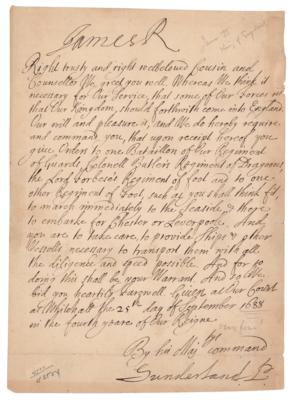 James R
Right trusty and right welbeloved Cousin and
Counsellor We greet you well. Whereas We think it
necessary for Our Service, that some of Our Forces in
that Our Kingdom, should forthwith come into England.
Our will and pleasure is, and We do hereby require
and command you, that upon receipt hereof you
give Orders to one Battallion of Our Regiment
of Guards, Colonell Butlers Regiment of Dragoons,
the Lord Forbess's Regiment of foot and to one
other Regiment of foot, such as you shall think fit,
to march immediately to the Seaside, & there
to embarke for Chester or Leverpoole. And
you are to take care, to provide Ships & other
Vessells necessary to transport them with all
the diligence and speed possible. And for so
doing this shall be your Warrant And so We
bid you heartily Farewell. Given at Our Court
at Whitehall the 28th day of September 1688
in the fourth yeare of Our Reigne.
By his Matys command
Sunderland P